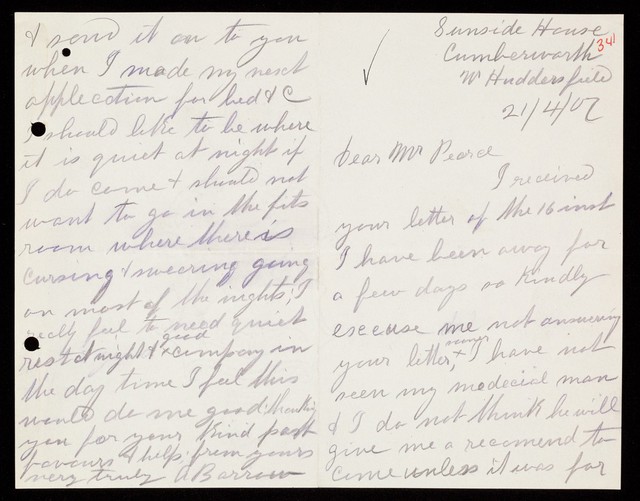 Sunside House
341
Cumberworth
Nr Huddersfield
21/4/07
Dear Mr Pearce
I received
your letter of the 16 inst
I have been away for
a few days so kindly
exceuse me not answering
your letter, sooner + I have not
seen my medecial man
& I do not think he will
give me a recomend to
come unless it was for
& send it on to you
when I made my next
applecation for bed & C
I should like to be where
it is quiet at night if
I do come + should not
want to go in the fits
room where there is
cursing & swearing going
on most of the nights; I
really feel to need quiet
rest at night & + good company in
the day time I feel this
would do me good: thanking
you for your kind past
favours & help; from yours
very truly A Barrow